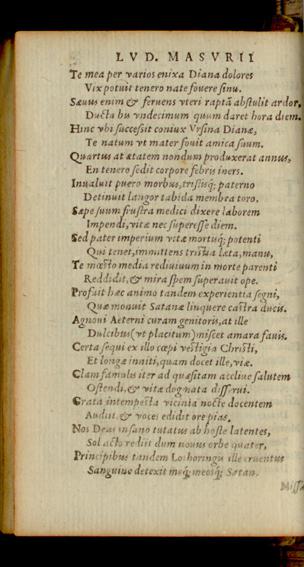 LVD. MASVRII
Te mea per varios enixa Diana dolores
Vix potuit tenero nate fouere sinu.
Sæuus enim & feruens vteri raptã abstulit ardor,
Ducta bu vndecimum quum daret hora diem.
Hinc vbi successit coniux Vrsina Dianæ,
Te natum vt mater fouit amica suum.
Quartus at ætatem nondum produxerat annus,
En tenero sedit corpore febris iners.
Inualuit puero morbus, tristisq; paterno
Detinuit langor tabida membra toro.
Sæpe suum frustra medici dixere laborem
Impendi, vitæ nec superesse diem.
Sed pater imperium vitæ mortisq; potenti
Qui tenet, immittens tristia lata, manu,
Te mœsto media rediuiuum in morte parenti
Reddidit, & mira spem superauit ope.
Profuit hæc animo tandem experientia segni,
Quæ monuit Satanæ linquere castra ducis.
Agnoui Aeterni curam genitoris, at ille
Dulcibus (vt placitum) miscet amara fauis.
Certa sequi ex illo cœpi vestigia Christi,
Et longæ inniti, quam docet ille, viæ.
Clam famulis iter ad quæsitam accliue salutem
Ostendi, & vitæ dogmata disserui.
Grata intempesta vicinia nocte docentem
Audiit, & voces edidit ore pias.
Nos Deus insano tutatus ab hoste latentes,
Sol acto rediit dum nouus orbe quater.
Principibus tandem Lothoringis ille cruentus
Sanguine detexit meq; meosq; Satan.